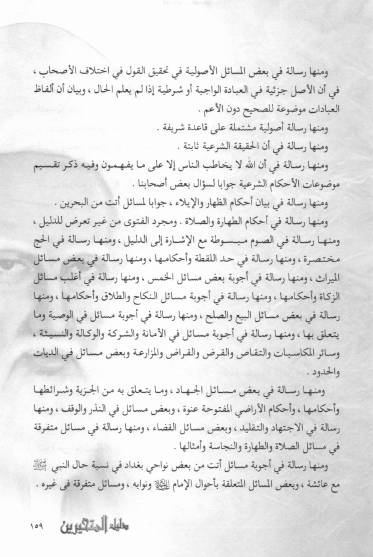 ومنها رسالة في بعض المسائل الأصولية في تحقيق القول في اختلاف الأصحاب ،
في أن الأصل جزئية في العبادة الواجبة أو شرطية إذا لم يعلم الحال ، وبيان أن ألفاظ
العبادات موضوعة للصحيح دون الأعم .
ومنها رسالة أصولية مشتملة على قاعدة شريفة .
ومنها رسالة في أن الحقيقة الشرعية ثابتة .
ومنها رسالة في أن الله لا يخاطب الناس إلا على ما يفهمون وفيه ذكر تقسيم
موضوعات الأحكام الشرعية جوابا لسؤال بعض أصحابنا .
ومنها رسالة في بيان أحكام الظهار والإيلاء ، جوابا لمسائل أتت من البحرين .
ومنها رسالة في أحكام الطهارة والصلاة . ومجرد الفتوى من غير تعرض للدليل ،
ومنها رسالة في الصوم مبسوطة مع الإشارة إلى الدليل ، ومنها رسالة في الحج
مختصرة ، ومنها رسالة في حد اللقطة وأحكامها ، ومنها رسالة في بعض مسائل
الميراث ، ومنها رسالة في أجوبة بعض مسائل الخمس ، ومنها رسالة في أغلب مسائل
الزكاة وأحكامها ، ومنها رسالة في أجوبة مسائل النكاح والطلاق وأحكامها ، ومنها
رسالة في بعض مسائل البيع والصلح ، ومنها رسالة في أجوبة مسائل في الوصية وما
يتعلق بها ، ومنها رسالة في أجوبة مسائل في الأمانة والشركة والوكالة والنسيئة ،
وسائر المكاسبات والتقاص والقرض والقراض والمزارعة وبعض مسائل في الديات
والحدود .
ومنها رسالة في بعض مسائل الجهاد ، وما يتعلق به من الجزية وشرائطها
وأحكامها ، وأحكام الأراضي المفتوحة عنوة ، وبعض مسائل في النذر والوقف ، ومنها
رسالة في الاجتهاد والتقليد ، وبعض مسائل القضاء ، ومنها رسالة في مسائل متفرقة
في مسائل الصلاة والطهارة والنجاسة وأمثالها .
ومنها رسالة في أجوبة مسائل أتت من بعض نواحي بغداد في نسبة حال النبي ﷺ
مع عائشة ، وبعض المسائل المتعلقة بأحوال الإمام ونوابه ، ومسائل متفرقة في غيره .
دليل المتحيرين ١٥٩